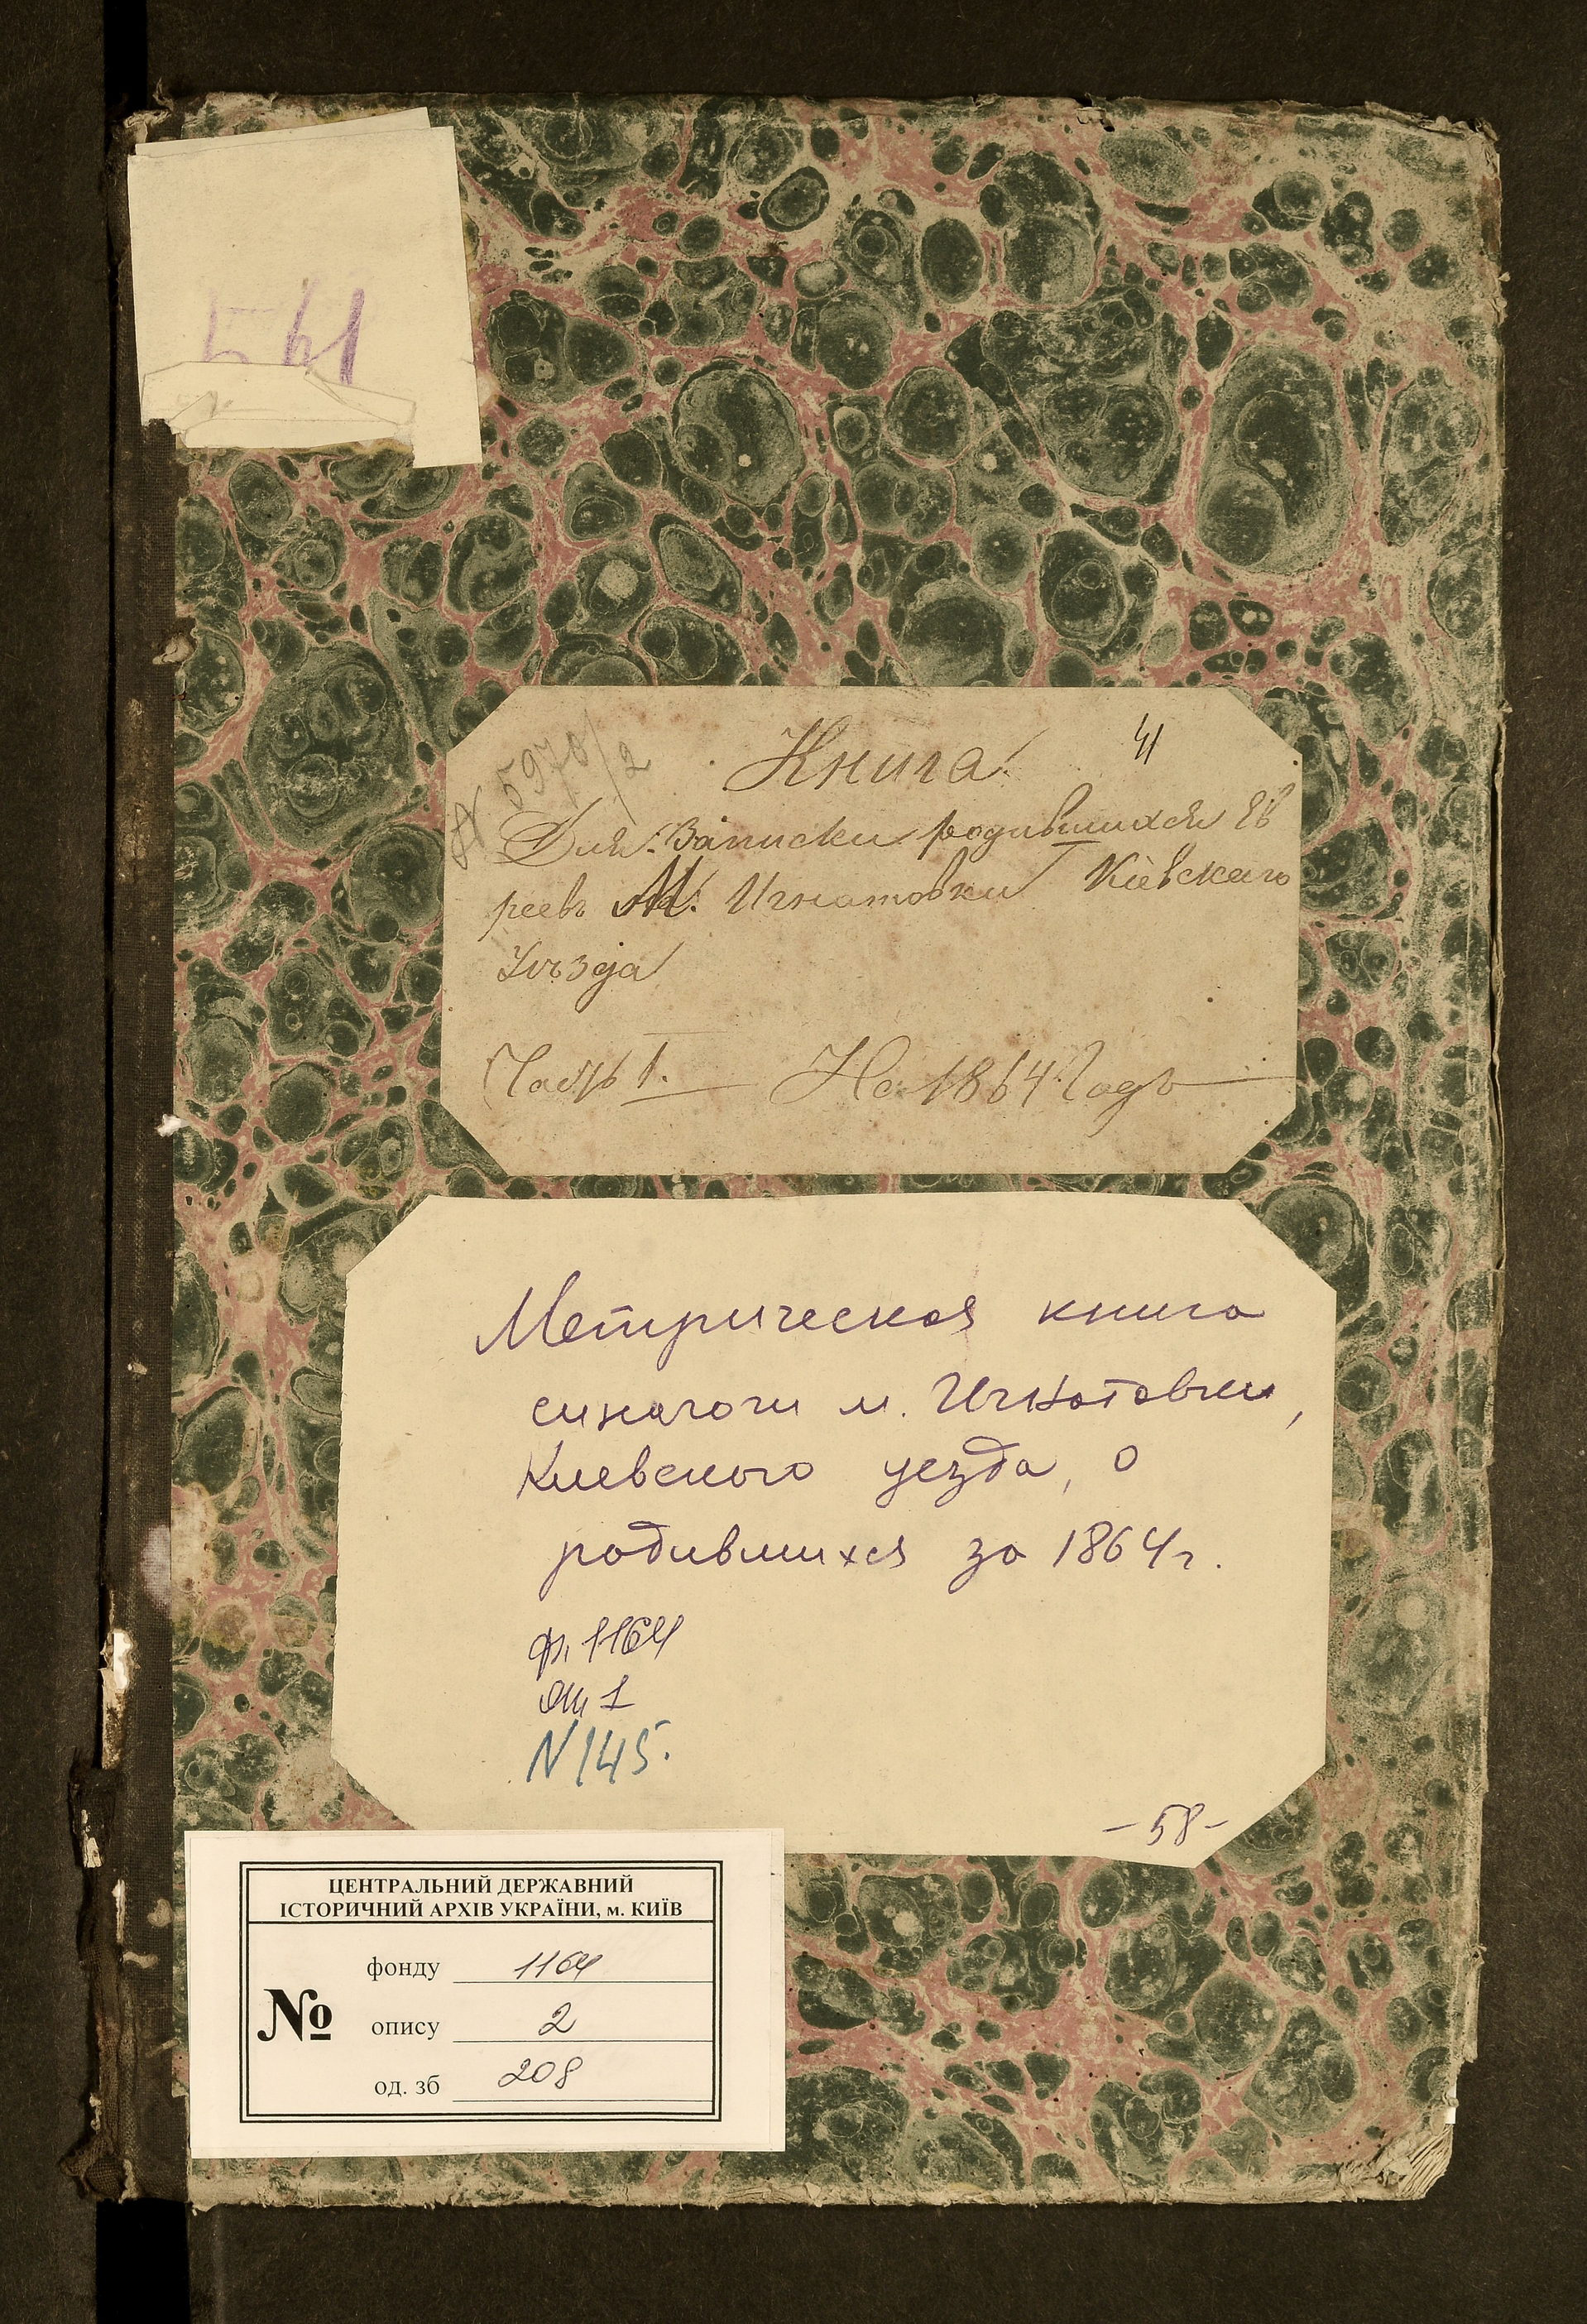 145
№ 5970/2
41
Книга
Для Записки родившихся Ев
реевъ М. Игнатовки Кіевскаго
Уѣзда
Часть I. На 1864 Годъ
Метрическая книга
синагоги м. Игнатовки,
Киевского уезда, о
родившихся за 1864 г.
ф. 1164
оп 1
N 145.
- 58 -
ЦЕНТРАЛЬНИЙ ДЕРЖАВНИЙ
ІСТОРИЧНИЙ АРХІВ УКРАЇНИ, м. КИЇВ
№
фонду 1164
опису 2
од. зб 208